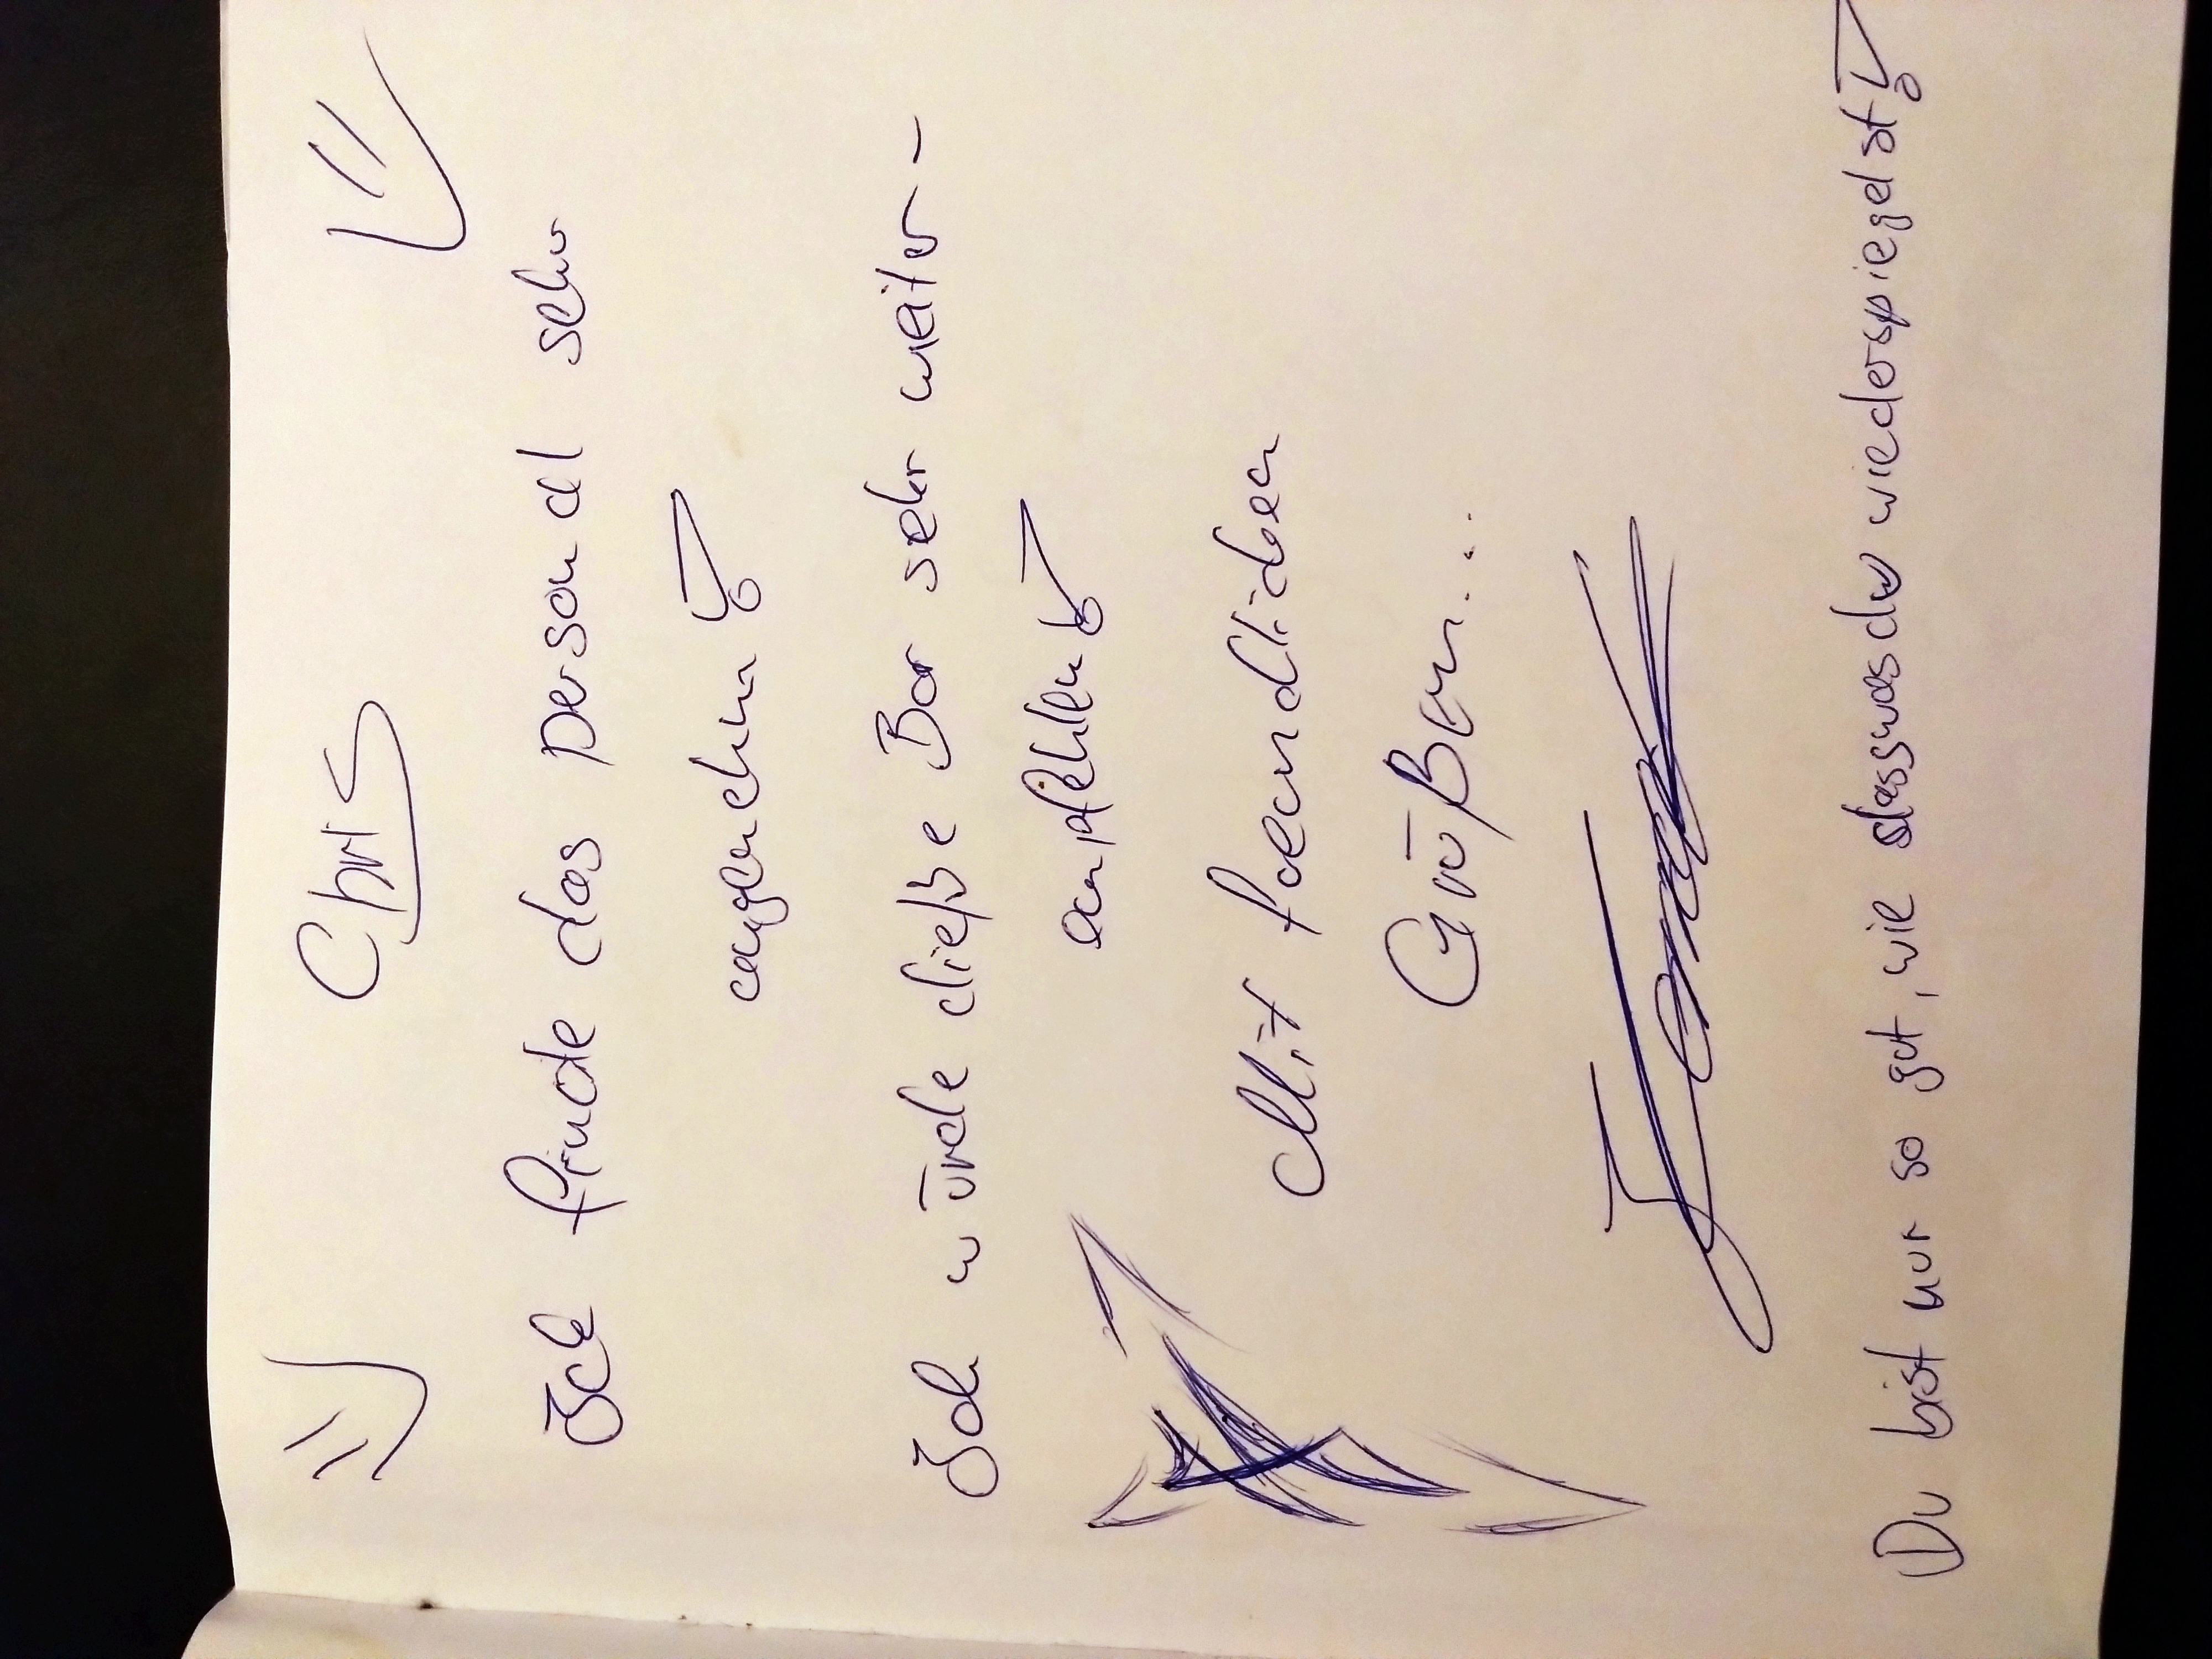 Chris
Ich finde das personal sehr
angenehm!
Ich würde dieße Bar sehr weiter-
empfehlen!
Mit freundlichen
Grüßen...
Du bist nur so gut, wie dass was du wiederspiegelst!